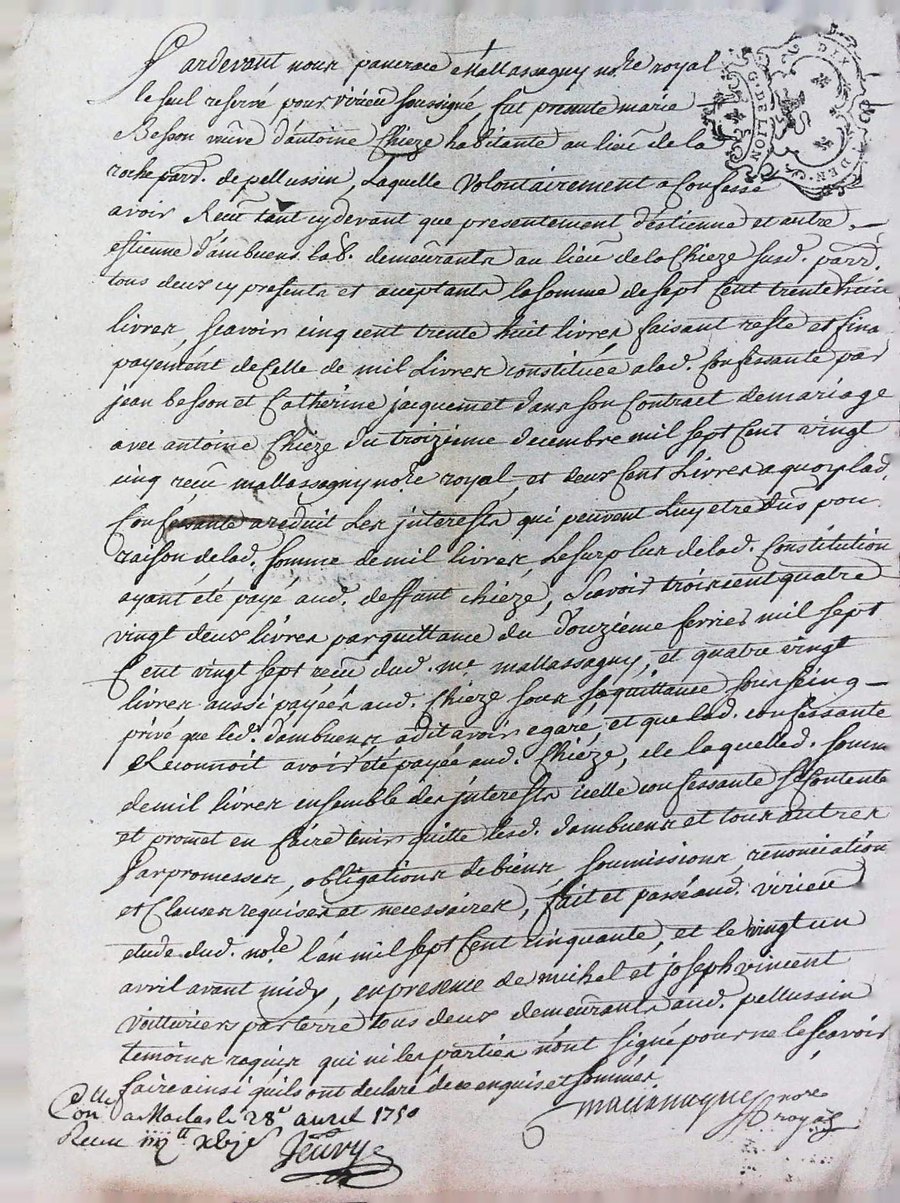 Pardevant nous pancrace Mallassagny no.re royal
le seul reservé pour virieu soussigné, fut presente marie
Besson veuve d'antoine Chieze habitante au lieu de la
roche parr.e de pellussin, Laquelle Volontairement a Confessé
avoir Receu tant cy devant que presentement d'estienne et autre
estienne d'ambuens lab.r demeurants au lieu de la Chieze susd. parr.
tous deux cy presents et aceptants la somme de sept Cent trente huit
livres, scavoir cinq cent trente huit livres faisant reste et fin a
payement de Celle de mil Livres constituée a lad. Confessante par
jean besson et Catherine jacquemet dans son Contract de mariage
avec antoine Chieze du troizieme decembre mil sept Cent vingt
cinq receu mallassagny no.re royal, et deux Cent Livres a quoy lad.
Confessante a reduit Les interests qui peuvent Luy etre dus pour
raison de lad. somme de mil livres Le surplus de lad. Constitution
ayant été payé aud. deffunt chieze, Scavoir trois cent quatre
vingt deux livres par quittance du douzieme fevrier mil sept
Cent vingt sept receu dud. me. mallassagny, et quatre vingt
livres aussi payées aud. Chieze sous sa quittance sous seing
privé que led. dambuens a dit avoir egaré, et que lad. confessante
Reconnoit avoir été payée aud. Chieze, de laquelle d. somme
de mil livres ensemble des jnterests icelle confessante se Contente
et promet en faire tenir quitte lesd. dambuens et tous autres
Par promesses, obligations de biens, soumissions, renonciation
et Clauses requises et necessaires, fait et passé aud. virieu
etude dud. no.re l'an mil sept Cent cinquante, et le vingt un
avril avant midy, en presence de michel et joseph vincent
voituriers par terre tous deux demeurants aud. pellussin
temoins requis qui ni les parties n'ont signé pour ne le scavoir
faire ainsi quils ont declaré de ce enquis et sommés
no.re
royal
Con.lle a Maclas le 28.e avril 1750
Receu
G. DE LION
DIX DEN.